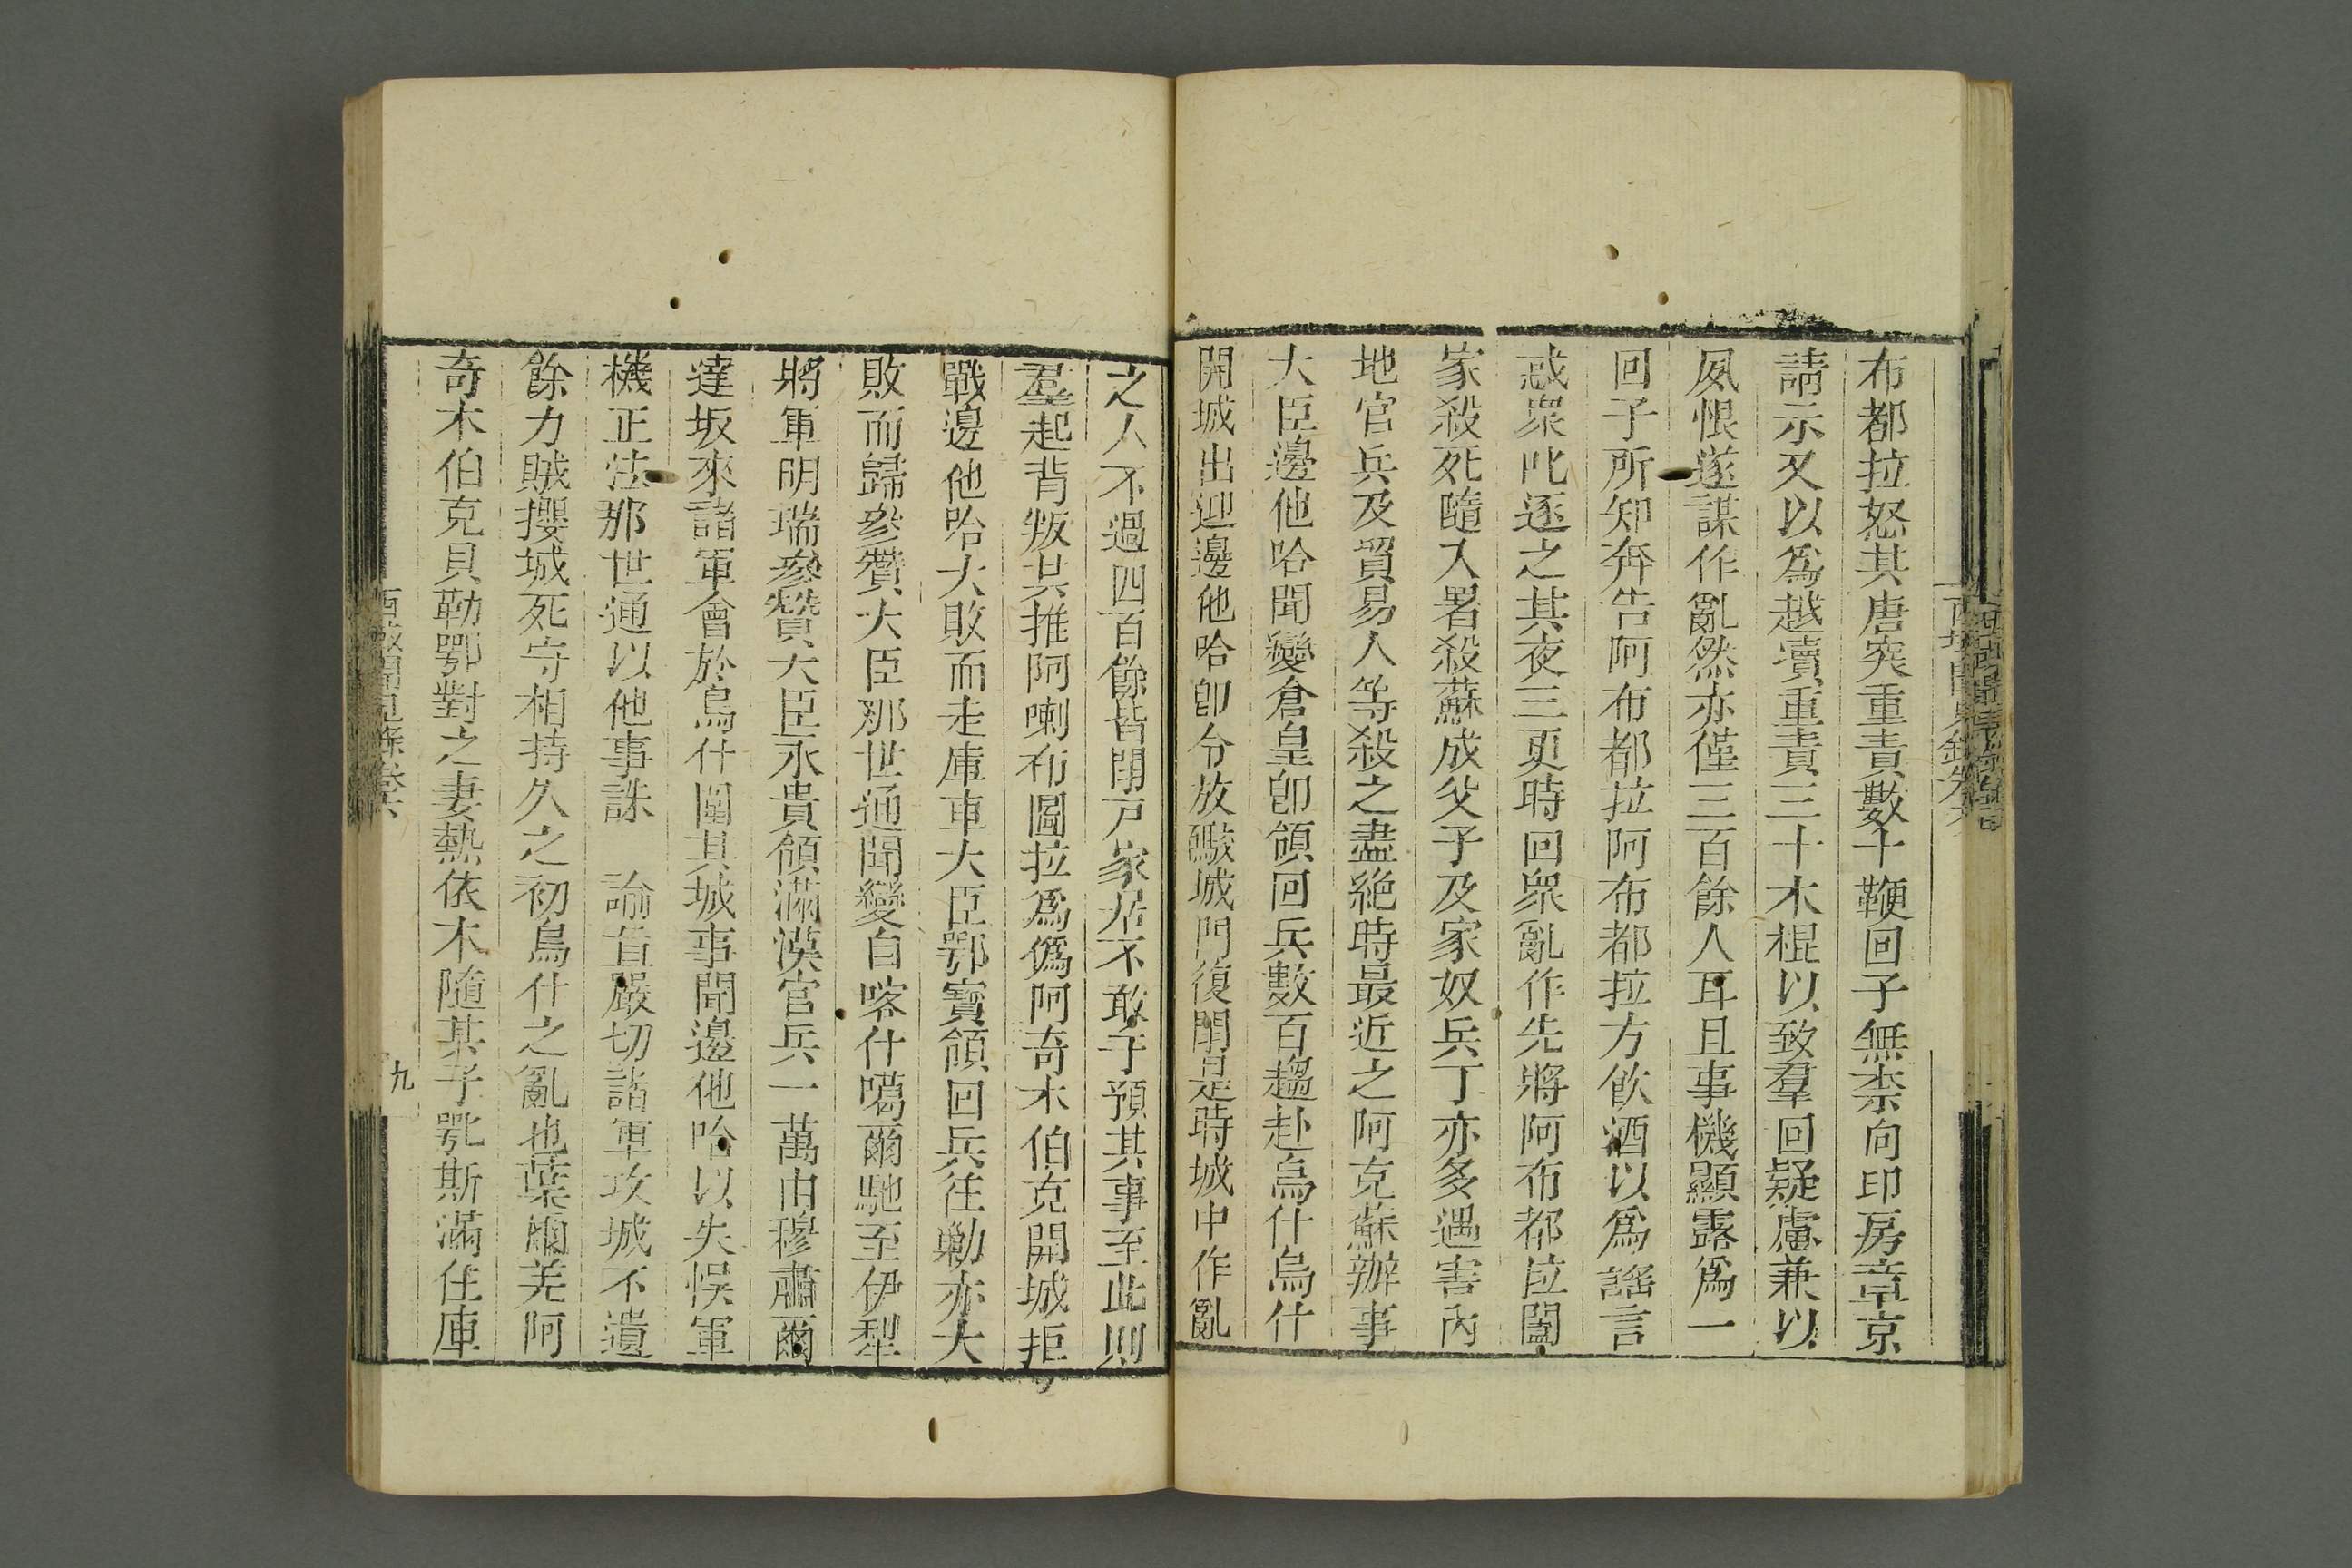 布都拉怒其唐突重責數十鞭回子無柰向印房章京
請示又以爲越瀆重責三十木棍以致羣回疑慮兼以
夙恨遂謀作亂然亦僅三百餘人耳且事機顯露爲一
回子所知奔告阿布都拉阿布都拉方飲酒以爲謠言
惑眾叱逐之其夜三更時回眾亂作先將阿布都拉闔
家殺死隨入署殺蘇成父子及家奴兵丁亦多遇害內
地官兵及貿易人等殺之盡絕時最近之阿克蘇辦事
大臣邊他哈聞變倉皇卽領回兵數百趨赴烏什烏什
開城出迎邊他哈卽令放礟城門復閉是時城中作亂
之人不過四百餘皆閉戸家居不敢于預其事至此則
羣起背叛共推阿喇布圖拉爲僞阿奇木伯克開城拒
戰邊他哈大敗而走庫車大臣鄂寶領回兵往勦亦大
敗而歸參贊大臣那世通聞變自喀什噶爾馳至伊犁
將軍明瑞參贊大臣永貴領滿漢官兵一萬由穆肅爾
達坂來諸軍會於烏什圍其城事聞邊他哈以失悞軍
機正法那世通以他事誅　諭旨嚴切諸軍攻城不遺
餘力賊攖城死守相持久之初烏什之亂也葉爾羌阿
奇木伯克貝勒鄂對之妻熱依木隨其子鄂斯滿任庫
西域聞見錄卷六
九